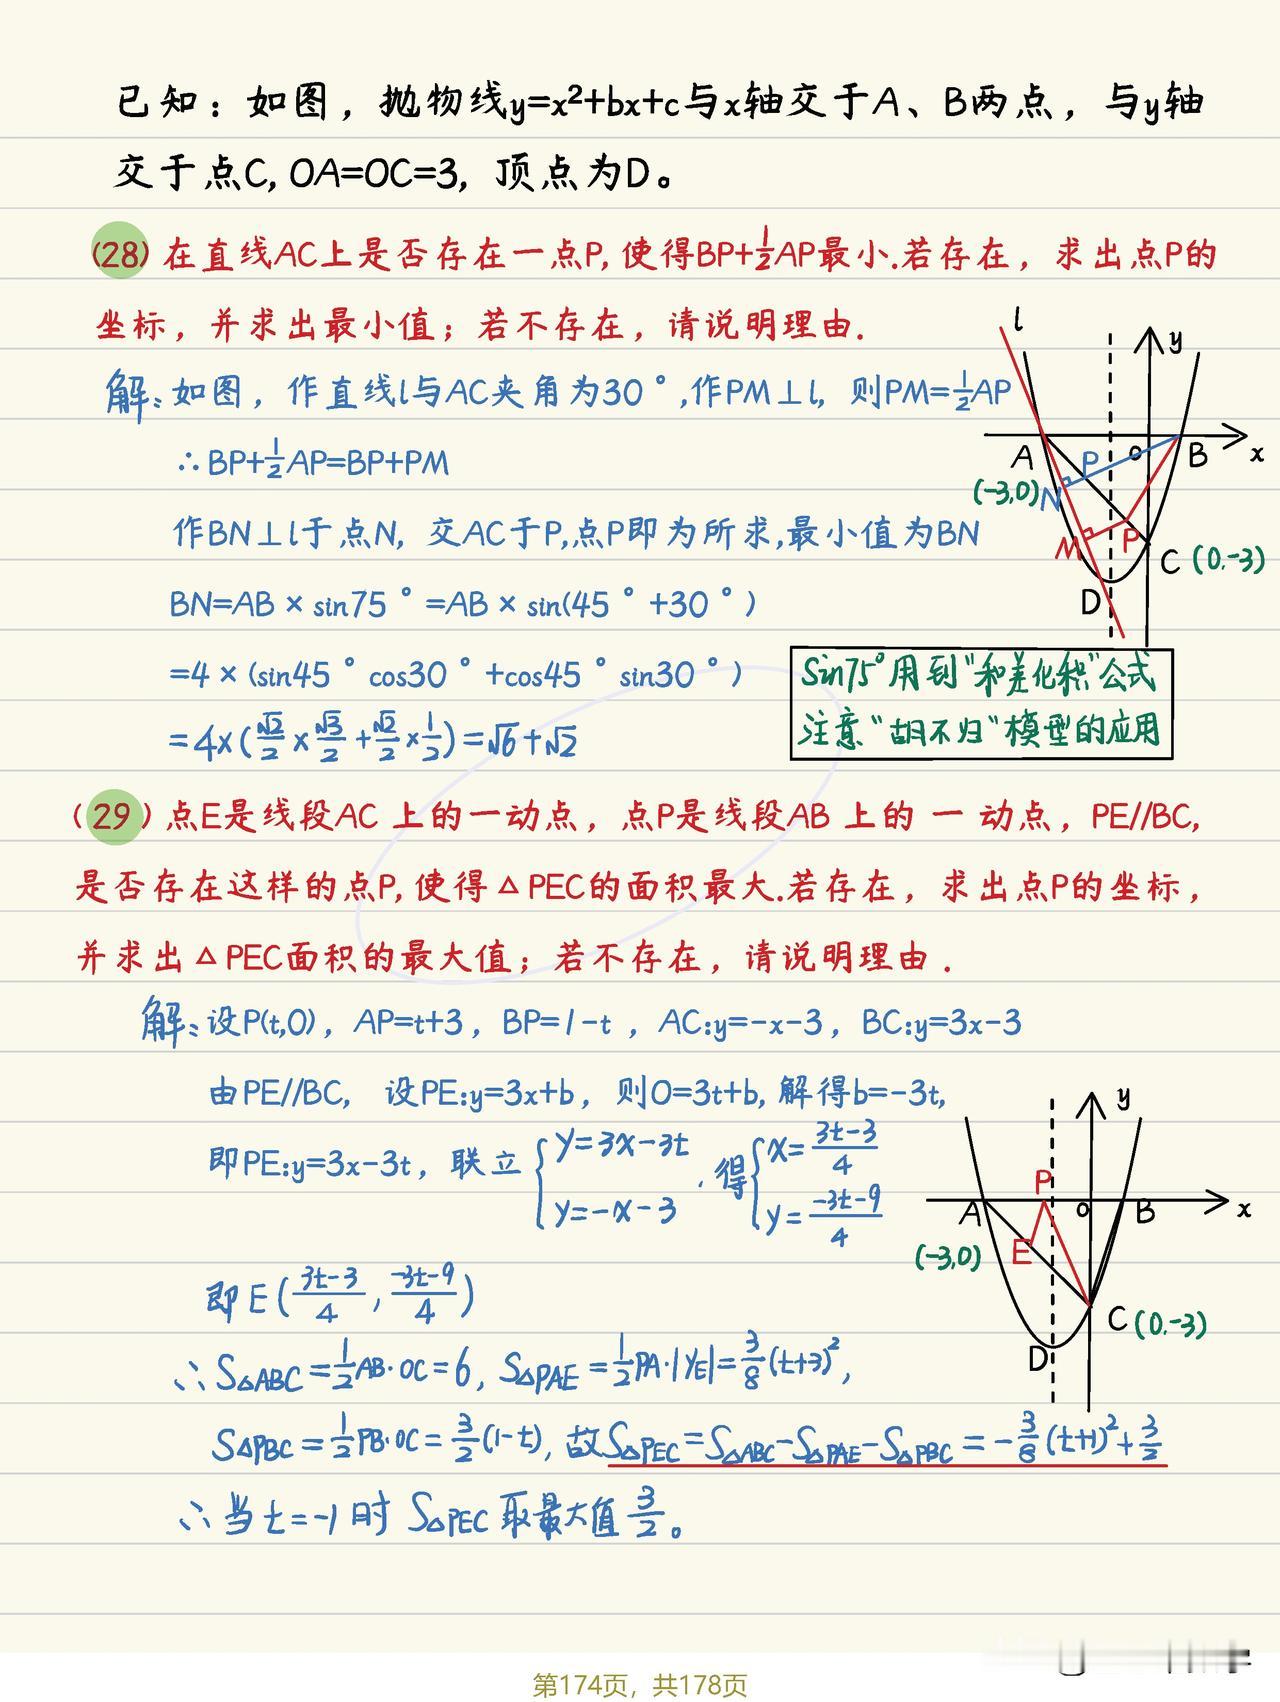 已知：如图，抛物线y=x²+bx+c与x轴交于A、B两点，与y轴
交于点C, OA=OC=3, 顶点为D。
(28) 在直线AC上是否存在一点P, 使得BP+1/2AP最小.若存在，求出点P的
坐标，并求出最小值；若不存在，请说明理由.
解: 如图，作直线l与AC夹角为30°,作PM⊥l, 则PM=1/2AP
∴BP+1/2AP=BP+PM
作BN⊥l于点N, 交AC于P,点P即为所求,最小值为BN
BN=AB×sin75°=AB×sin(45°+30°)
=4×(sin45°cos30°+cos45°sin30°)
=4×(√2/2×√3/2+√2/2×1/2)=√6+√2
l
y
A
P
O
B
x
(-3,0)
N
M
P
C (0,-3)
D
Sin75°用到"和差化积"公式
注意"胡不归"模型的应用
(29) 点E是线段AC上的一动点，点P是线段AB上的一动点，PE//BC,
是否存在这样的点P, 使得△PEC的面积最大.若存在，求出点P的坐标，
并求出△PEC面积的最大值；若不存在，请说明理由.
解: 设P(t,0)，AP=t+3，BP=1-t，AC:y=-x-3，BC:y=3x-3
由PE//BC, 设PE:y=3x+b，则0=3t+b, 解得b=-3t,
即PE:y=3x-3t，联立{y=3x-3t
y=-x-3 ，得{x=(3t-3)/4
y=(-3t-9)/4
即E((3t-3)/4, (-3t-9)/4)
∴S△ABC=1/2AB·OC=6, S△PAE=1/2PA·|yE|=3/8(t+3)²,
S△PBC=1/2PB·OC=3/2(1-t), 故S△PEC=S△ABC-S△PAE-S△PBC=-3/8(t+1)²+3/2
∴当t=-1时 S△PEC取最大值3/2。
y
P
A
O
B
x
(-3,0)
E
C (0,-3)
D
第174页，共178页